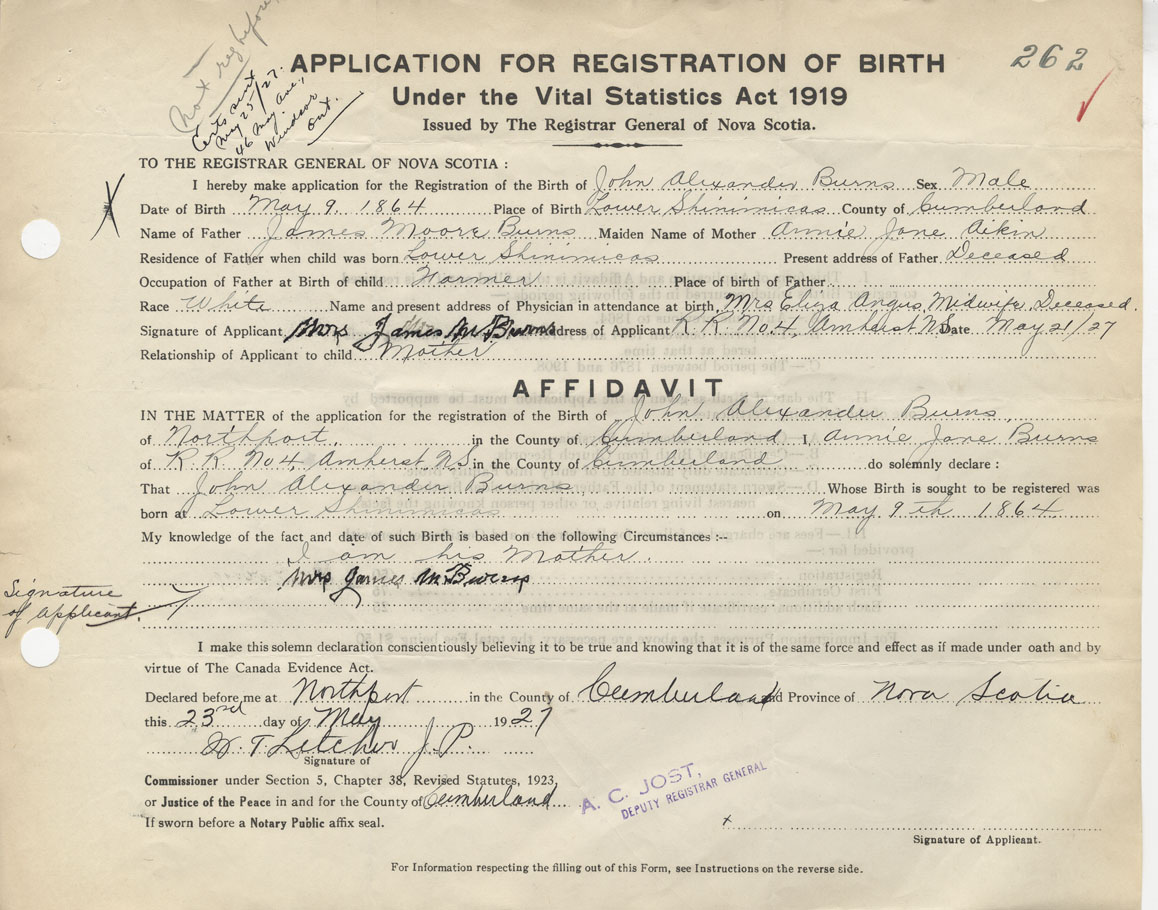 Not reg before
Certs sent
May 25/27.
46 May Ave,
Windsor
Ont.
262
APPLICATION FOR REGISTRATION OF BIRTH
Under the Vital Statistics Act 1919
Issued by The Registrar General of Nova Scotia.
TO THE REGISTRAR GENERAL OF NOVA SCOTIA :
I hereby make application for the Registration of the Birth of John Alexander Burns Sex Male
Date of Birth May 9, 1864 Place of Birth Lower Shinimicas County of Cumberland
Name of Father James Moore Burns Maiden Name of Mother Annie Jane Aikin
Residence of Father when child was born Lower Shinimicas Present address of Father Deceased
Occupation of Father at Birth of child Farmer Place of birth of Father
Race White Name and present address of Physician in attendance at birth, Mrs Eliza Angus, Midwife, Deceased.
Signature of Applicant Mrs James M Burns Address of Applicant R. R. No. 4, Amherst N.S. Date May 21/27
Relationship of Applicant to child Mother
AFFIDAVIT
IN THE MATTER of the application for the registration of the Birth of John Alexander Burns
of Northport, in the County of Cumberland I, Annie Jane Burns
of R. R. No 4, Amherst, N.S. in the County of Cumberland do solemnly declare :
That John Alexander Burns Whose Birth is sought to be registered was
born at Lower Shinimicas on May 9th 1864
My knowledge of the fact and date of such Birth is based on the following Circumstances :--
I am his Mother.
Mrs James M Burns
Signature
of applicant.
I make this solemn declaration conscientiously believing it to be true and knowing that it is of the same force and effect as if made under oath and by
virtue of The Canada Evidence Act.
Declared before me at Northport in the County of Cumberland and Province of Nova Scotia
this 23rd day of May 1927
W. T. Letcher J. P.
Signature of
Commissioner under Section 5, Chapter 38, Revised Statutes, 1923,
or Justice of the Peace in and for the County of Cumberland
If sworn before a Notary Public affix seal.
A. C. JOST,
DEPUTY REGISTRAR GENERAL
x
Signature of Applicant.
For Information respecting the filling out of this Form, see Instructions on the reverse side.